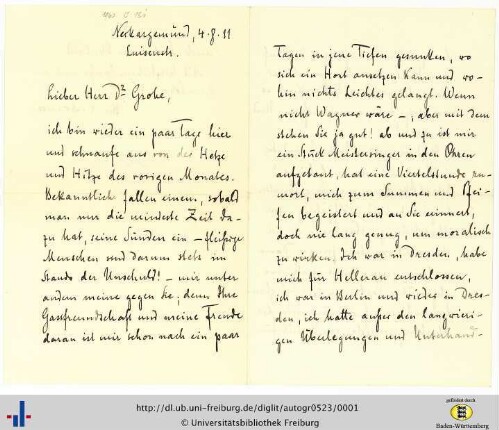 Neckargemünd, 4.8.11
Luisenstr.
Lieber Herr Dr. Grohe,
ich bin wieder ein paar Tage hier
und schnaufe aus von der Hetze
und Hitze des vorigen Monates.
Bekanntlich fallen einem, sobald
man nur die mindeste Zeit da-
zu hat, seine Sünden ein – fleißige
Menschen sind darum stets im
Stande der Unschuld! – mir unter
andern meine gegen Sie; denn Ihre
Gastfreundschaft und meine Freude
daran ist mir schon nach ein paar
Tagen in jene Tiefen gesunken, wo
sich ein Hort ansetzen kann und wo-
hin nichts Leichtes gelangt. Wenn
nicht Wagner wäre –, aber mit dem
stehen Sie ja gut! ab und zu ist mir
ein Stück Meistersinger in den Ohren
aufgetaut, hat eine Viertelstunde
mich zum Summen und Pfei-
fen begeistert und an Sie erinnert,
doch nie lang genug, um moralisch
zu wirken. Ich war in Dresden, habe
mich für Hellerau entschlossen,
ich war in Berlin und wieder in Dres-
den, ich hatte außer den langwieri-
gen Überlegungen und Unterhand-
http://dl.ub.uni-freiburg.de/diglit/autogr0523/0001
© Universitätsbibliothek Freiburg
gefördert durch
Baden-Württemberg